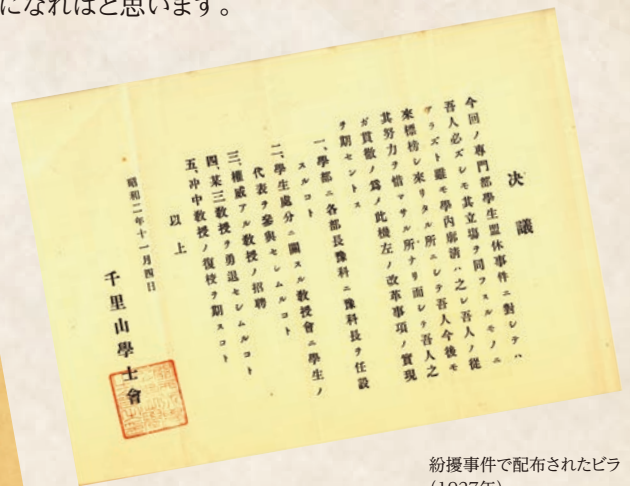 になればと思います。
決議
今回ノ専門部學生盟休事件ニ對シテハ
吾人必ズシモ其立場ヲ同フスルモノニ
アラズト雖モ學内廓清ハ之レ吾人ノ從
來標榜シ來リタル所ニシテ吾人今後モ
其努力ヲ惜マサル所ナリ而シテ吾人之
ガ貫徹ノ爲ノ此機左ノ改革事項ノ實現
ヲ期セントス
一、學部ニ各部長豫科ニ豫科長ヲ任設
スルコト
二、學生處分ニ關スル教授會ニ學生ノ
代表ヲ參與セシムルコト
三、權威アル教授ノ招聘
四、某三教授ヲ勇退セシムルコト
五、冲中教授ノ復校ヲ期スコト
以上
昭和二年十一月四日
千里山學士會
紛擾事件で配布されたビラ
(1927年)